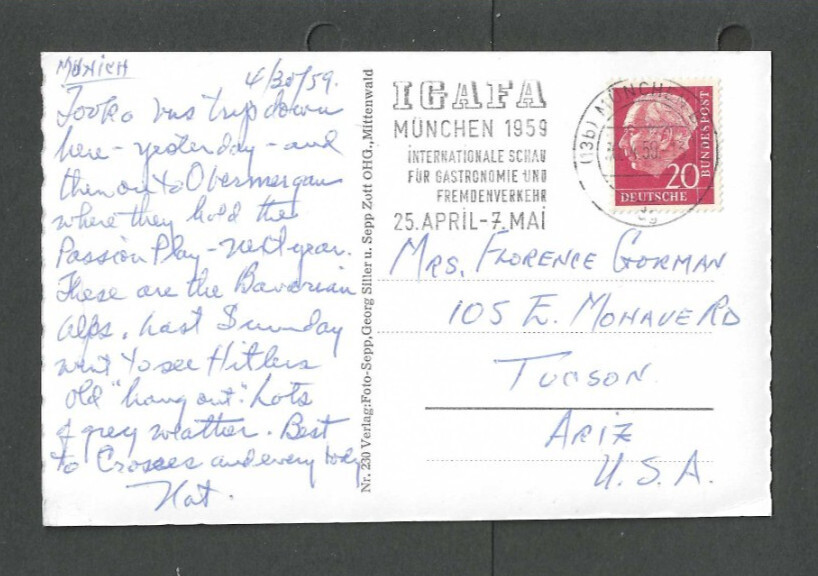 MUNICH
4/30/59.
Took a bus trip down
here - yesterday - and
then on to Obermergau
where they hold the
Passion Play - next year.
These are the Bavarian
Alps. Last Sunday
went to see Hitlers
old "hang out". Lots
of grey weather. Best
to Crosses and every body
Nat.
Nr. 230 Verlag: Foto-Sepp, Georg Siller u. Sepp Zott OHG., Mittenwald
IGAFA
MÜNCHEN 1959
INTERNATIONALE SCHAU
FÜR GASTRONOMIE UND
FREMDENVERKEHR
25. APRIL - 7. MAI
(13b) MÜNCHEN
20
DEUTSCHE
BUNDESPOST
MRS. FLORENCE GORMAN
105 E. MOHAVE RD
TUCSON
ARIZ
U.S.A.